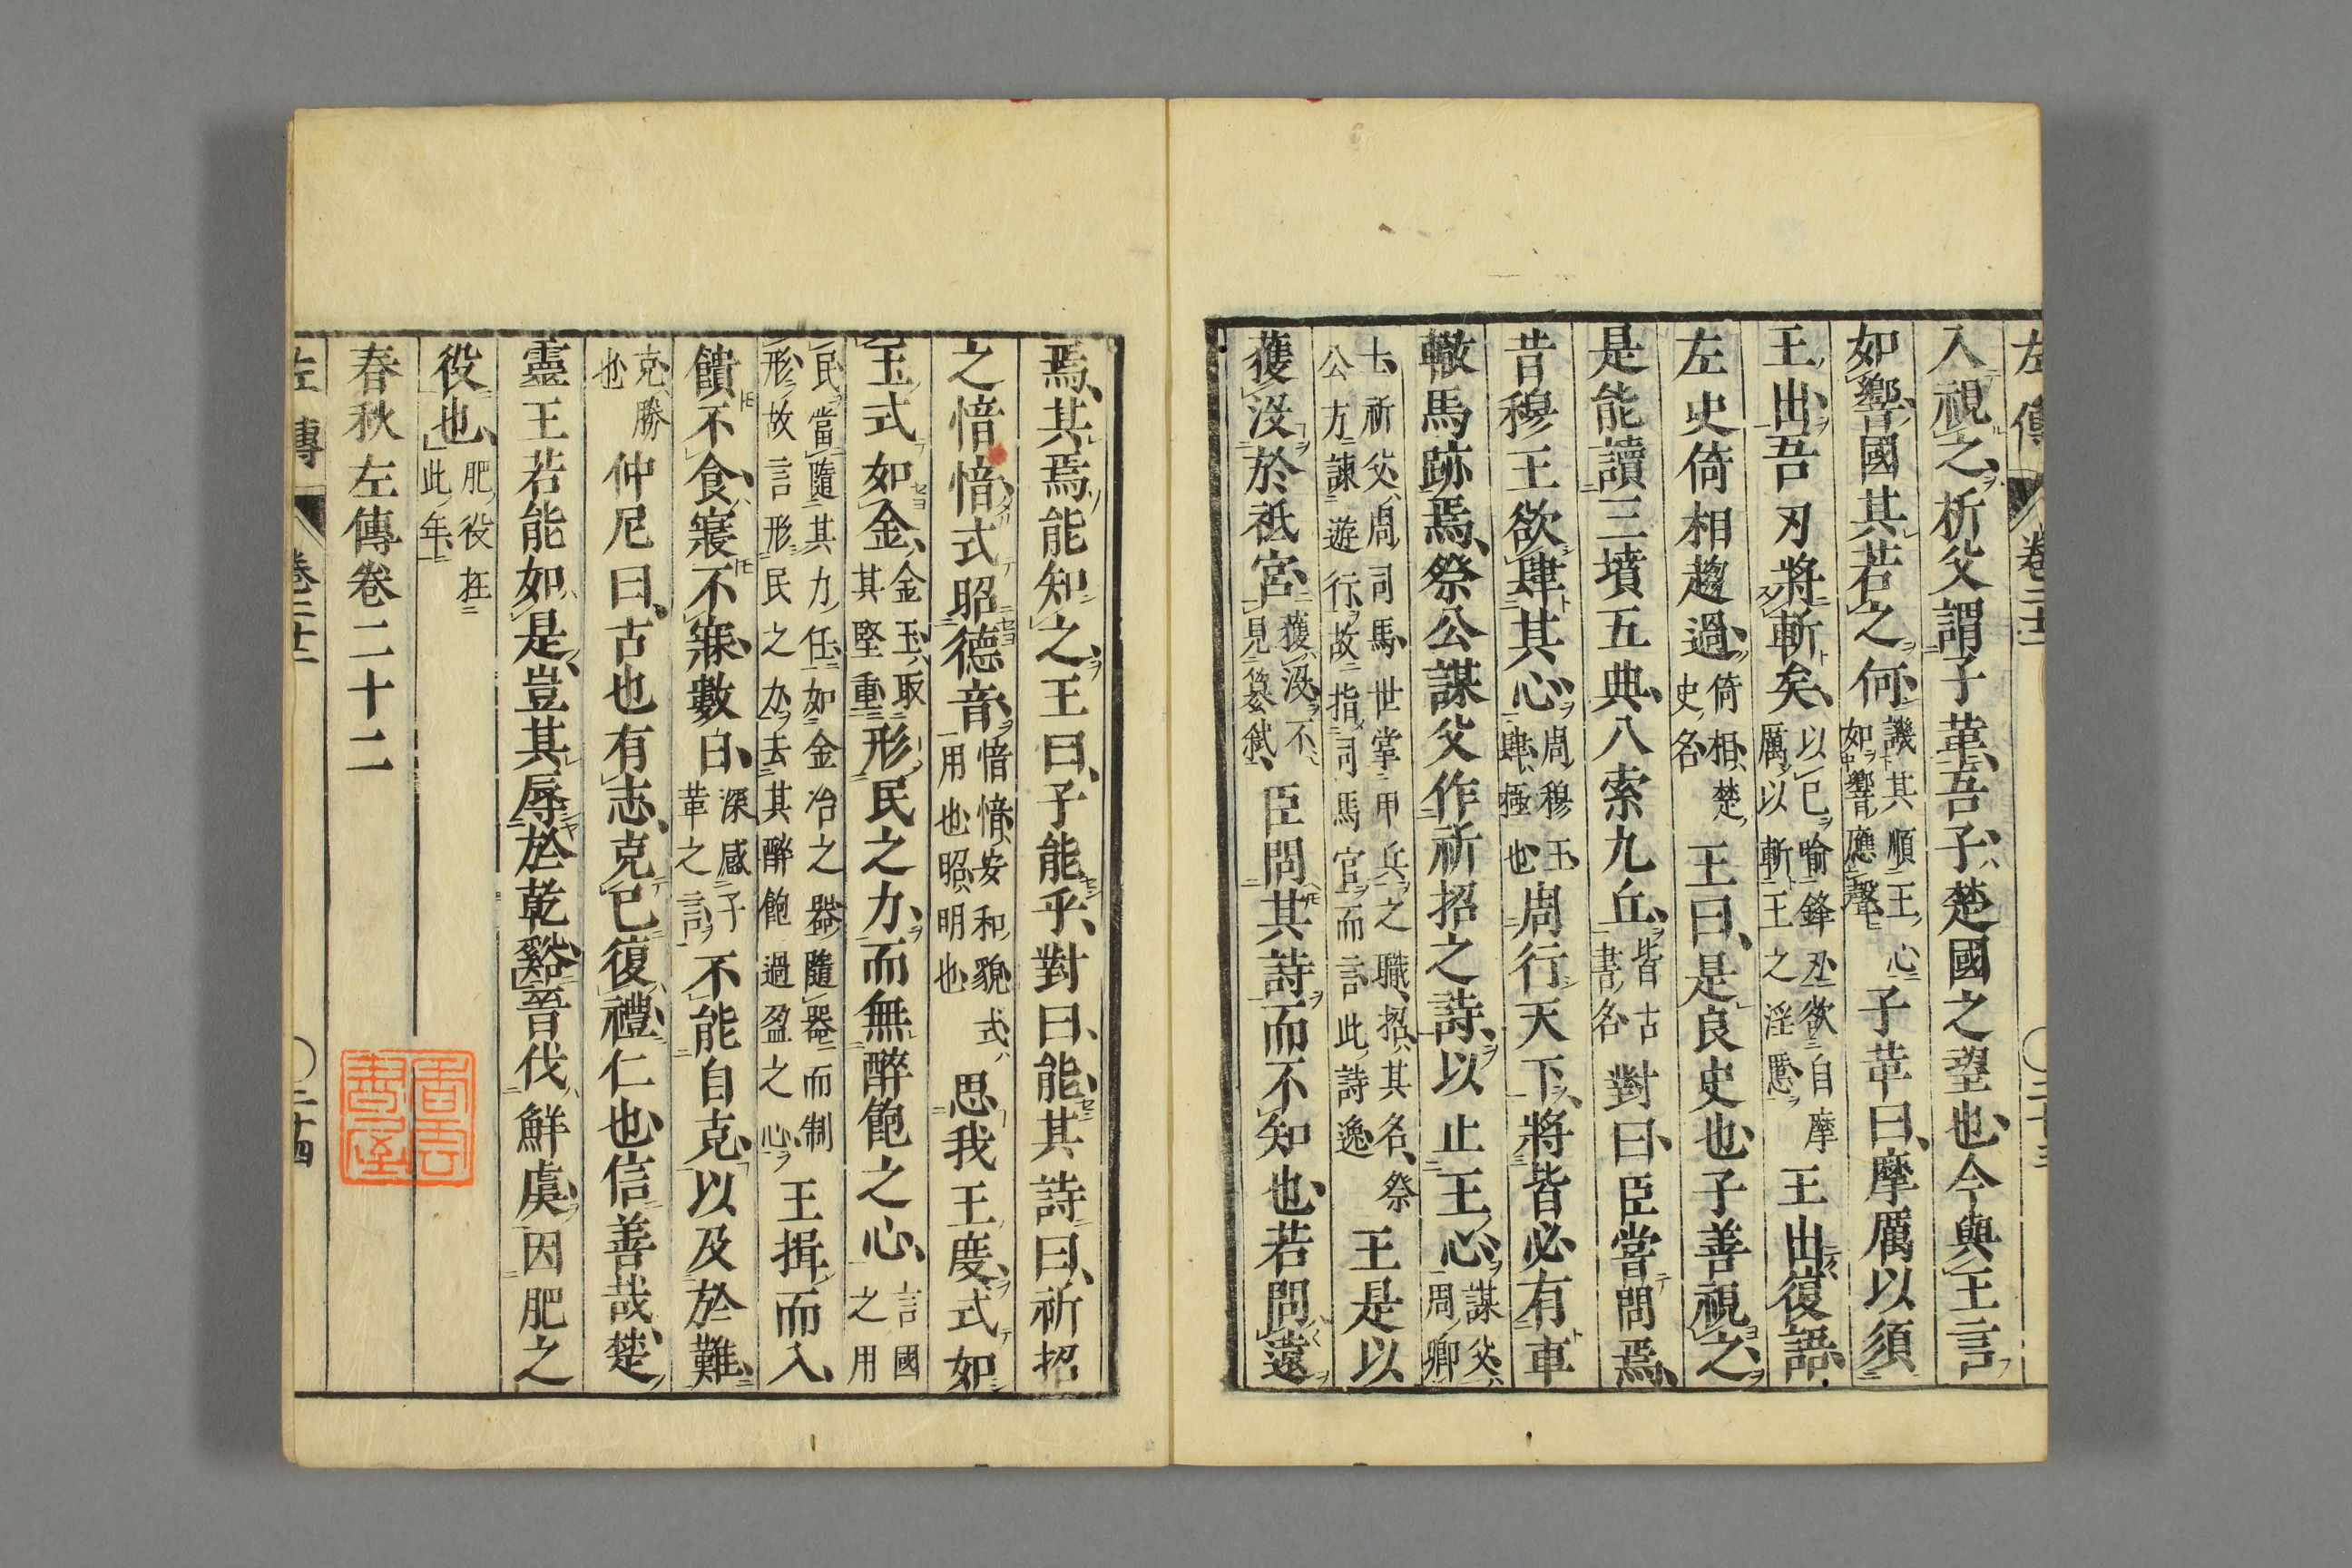 左傳 卷二十二 〇二十三
入視之析父謂子革吾子楚國之望也今與王言
如響國其若之何譏其順王心如響應聲子革曰摩厲以須
王出吾刃將斬矣以己喻鋒刃欲自摩厲以斬王之淫慝王出復語
左史倚相趨過倚相楚史名王曰是良史也子善視之
是能讀三墳五典八索九丘皆古書名對曰臣嘗問焉
昔穆王欲肆其心周穆王肆極也周行天下將皆必有車
轍馬跡焉祭公謀父作祈招之詩以止王心謀父周卿
士祈父周司馬世掌甲兵之職招其名祭公方諫遊行故指司馬官而言此詩逸王是以
獲沒於祗宮獲沒不見簒弑臣問其詩而不知也若問遠
焉其焉能知之王曰子能乎對曰能其詩曰祈招
之愔愔式昭德音愔愔安和貌式用也昭明也思我王度式如
玉式如金金玉取其堅重形民之力而無醉飽之心言國之用
民當隨其力任如金冶之器隨器而制形故言形民之力去其醉飽過盈之心王揖而入
饋不食寢不寐數日深感子革之言不能自克以及於難
克勝也仲尼曰古也有志克己復禮仁也信善哉楚
靈王若能如是豈其辱於乾谿晉伐鮮虞因肥之
役也肥役在此年
春秋左傳卷二十二
左傳 卷二十二 〇二十四